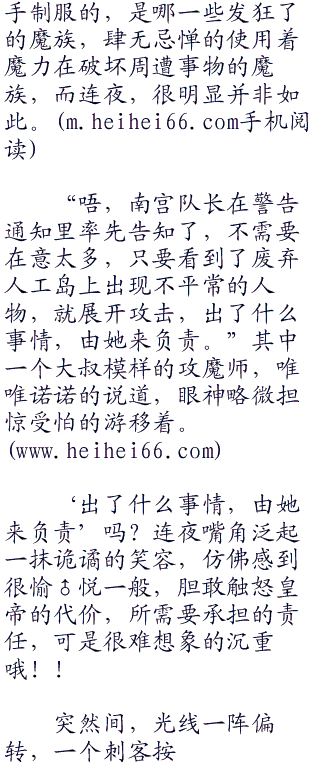 手制服的，是哪一些发狂了
的魔族，肆无忌惮的使用着
魔力在破坏周遭事物的魔
族，而连夜，很明显并非如
此。(m.heihei66.com手机阅
读)
“唔，南宫队长在警告
通知里率先告知了，不需要
在意太多，只要看到了废弃
人工岛上出现不平常的人
物，就展开攻击，出了什么
事情，由她来负责。”其中
一个大叔模样的攻魔师，唯
唯诺诺的说道，眼神略微担
惊受怕的游移着。
(www.heihei66.com)
‘出了什么事情，由她
来负责’吗？连夜嘴角泛起
一抹诡谲的笑容，仿佛感到
很愉♂悦一般，胆敢触怒皇
帝的代价，所需要承担的责
任，可是很难想象的沉重
哦！！
突然间，光线一阵偏
转，一个刺客按